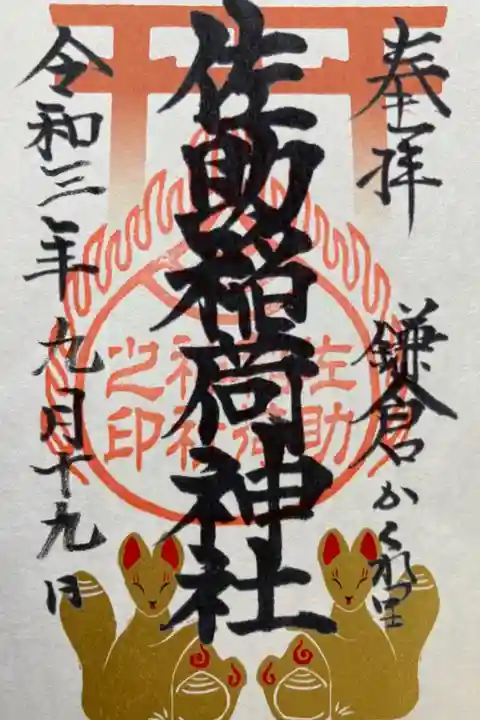 奉拝
鎌倉かくれ里
佐助稲荷神社
佐助稲荷神社之印
令和三年九月十九日